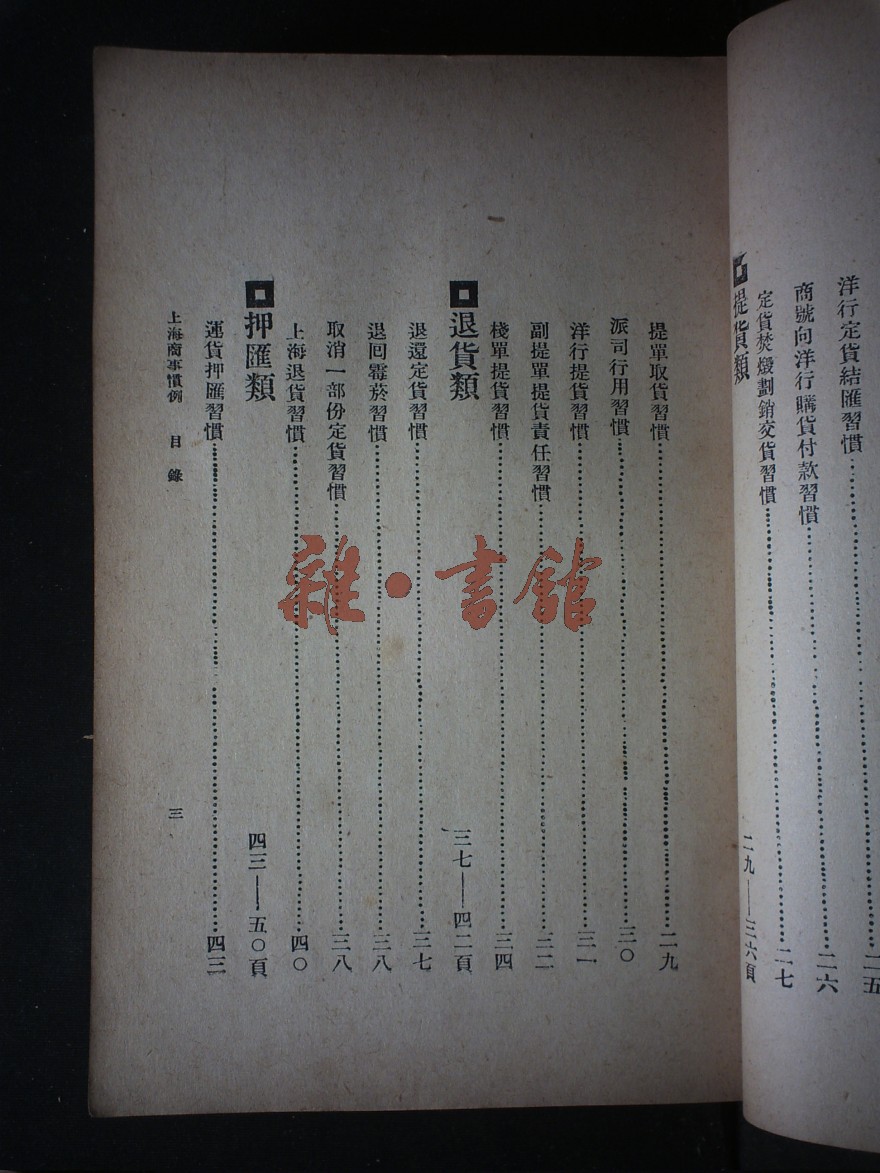 洋行定貨結匯習慣………二五
商號向洋行購貨付款習慣………二六
定貨焚燬劃銷交貨習慣………二七
提貨類 二九——三六頁
提單取貨習慣………二九
派司行用習慣………三〇
洋行提貨習慣………三一
副提單提貨責任習慣………三二
棧單提貨習慣………三四
退貨類 三七——四二頁
退還定貨習慣………三七
退回霉菸習慣………三八
取消一部份定貨習慣………三八
上海退貨習慣………四〇
押匯類 四三——五〇頁
運貨押匯習慣………四三
上海商事慣例 目錄 三
雜·書館